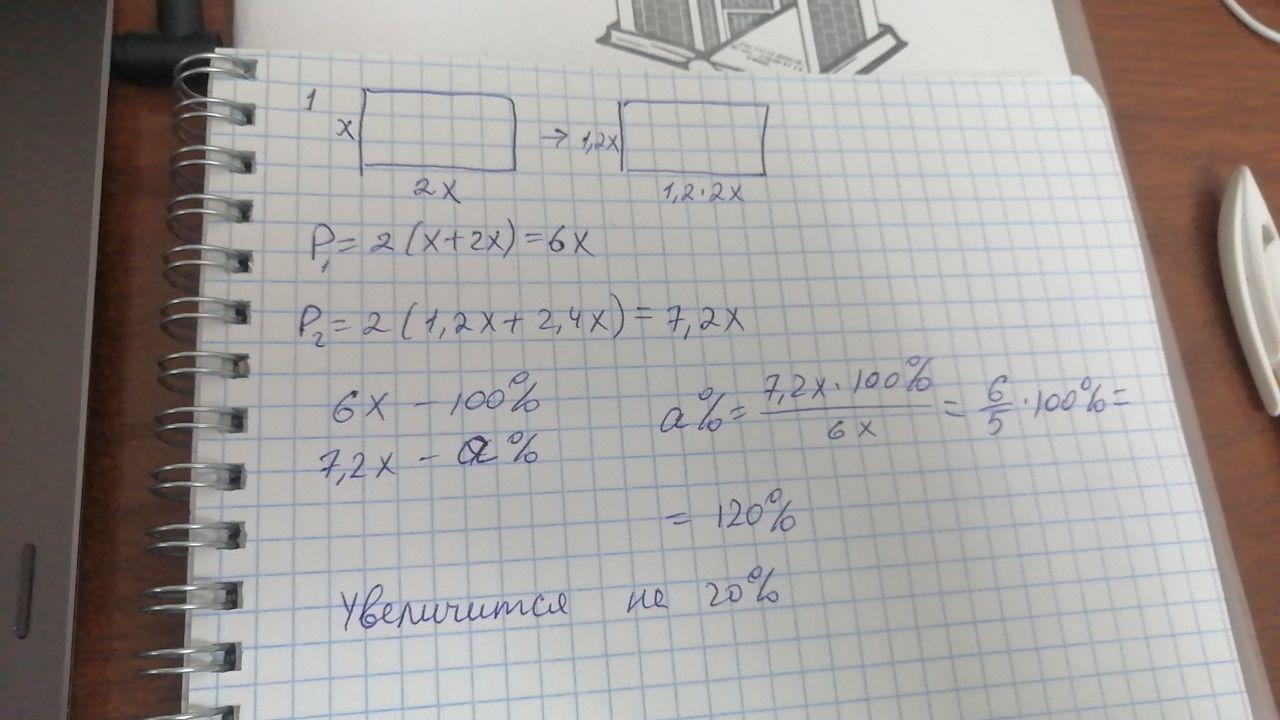 1
x → 1,2x
2x 1,2·2x
P₁ = 2(x+2x) = 6x
P₂ = 2(1,2x + 2,4x) = 7,2x
6x – 100%
7,2x – a%
a% = 7,2x·100% / 6x = 6/5 · 100% =
= 120%
Увеличится на 20%